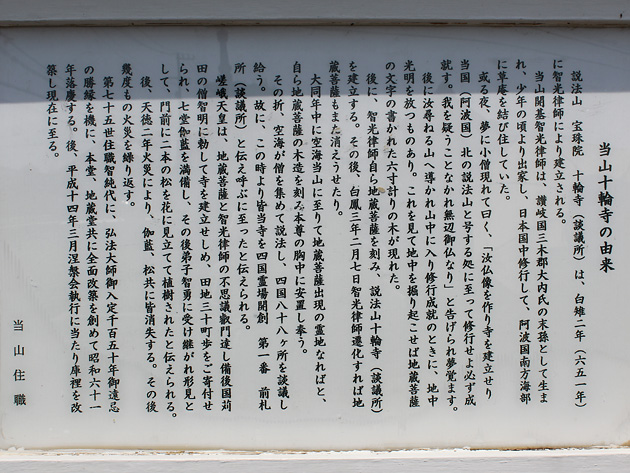 当山十輪寺の由来
説法山　宝珠院　十輪寺（談議所）は、白雉二年（六五一年）
に智光律師により建立される。
当山開基智光律師は、讃岐国三木郡大内氏の末孫として生ま
れ、少年の頃より出家し、日本国中修行して、阿波国南方海部
に草庵を結び住していた。
或る夜、夢に小僧現れて曰く、「汝仏像を作り寺を建立せり
当国（阿波国）北の説法山と号する処に至って修行せよ必ず成
就す。我を疑うことなかれ無辺御仏なり」と告げられ夢覚ます。
後に汝尋ねる山へ導かれ山中に入り修行成就のときに、地中
光明を放つものあり。これを見て地中を掘り起こせば地蔵菩薩
の文字の書かれた六寸計りの木が現れた。
後に、智光律師自ら地蔵菩薩を刻み、説法山十輪寺（談議所）
を建立する。その後、白鳳三年二月七日智光律師遷化すれば地
蔵菩薩もまた消えうせたり。
大同年中に空海当山に至りて地蔵菩薩出現の霊地なればと、
自ら地蔵菩薩の木造を刻み本尊の胸中に安置し奉う。
その折、空海が僧を集めて説法し、四国八十八ヶ所を談議し
給う。故に、この時より皆当寺を四国霊場開創　第一番　前札
所（談議所）と伝え呼ぶに至ったと伝えられる。
嵯峨天皇は、地蔵菩薩と智光律師の不思議叡聞達し備後国苅
田の僧智明に勅して寺を建立せしめ、田地三十町歩をご寄付せ
られ、七堂伽藍を満備し、その後弟子智勇に受け継がれ形見と
して、門前に二本の松を花に見立てて植樹されたと伝えられる。
後、天徳二年火災により、伽藍、松共に皆消失する。その後
幾度もの火災を繰り返す。
第七十五世住職智純代に、弘法大師御入定千百五十年御遠忌
の勝縁を機に、本堂、地蔵堂共に全面改築を創めて昭和六十一
年落慶する。後、平成十四年三月涅槃会執行に当たり庫裡を改
築し現在に至る。
当山住職